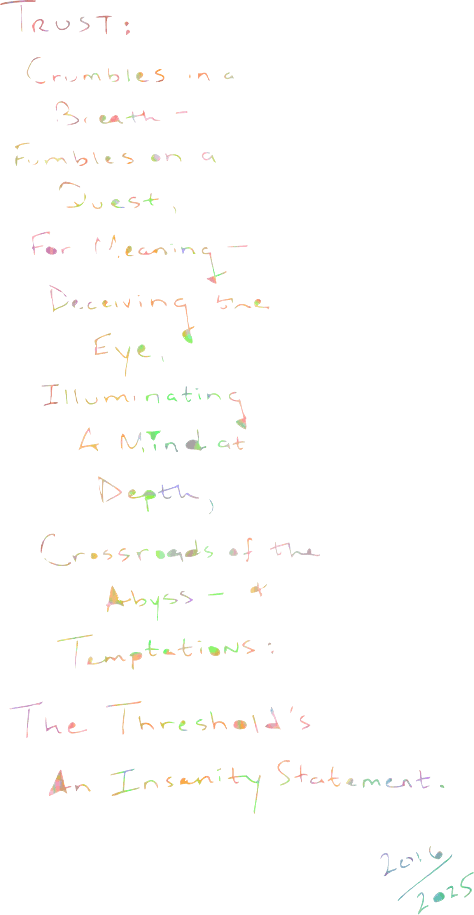 Trust:
Crumbles in a
Breath -
Fumbles on a
Quest,
For Meaning -
Deceiving the
Eye,
Illuminating
A Mind at
Depth,
Crossroads of the
Abyss - &
Temptations:
The Threshold's
An Insanity Statement.
2016/
2025